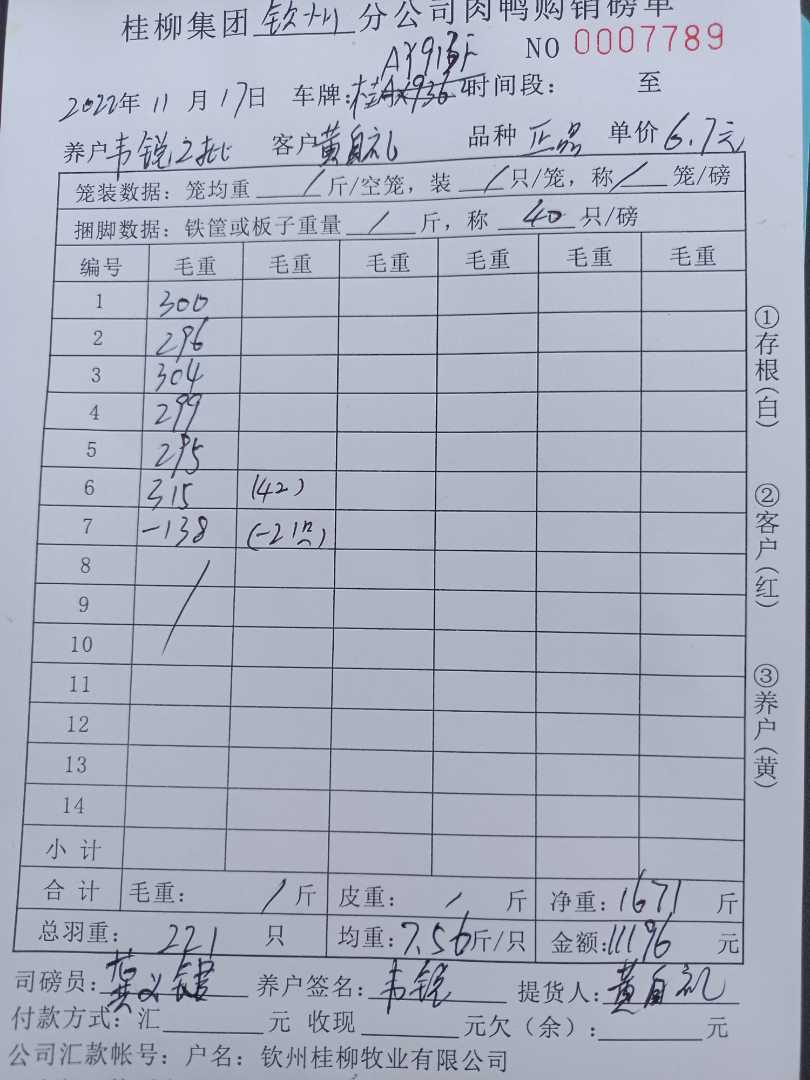 桂柳集团 钦州 分公司肉鸭购销磅单
NO 0007789
2022年 11 月 17日 车牌:桂 时间段: 至
养户韦锐2批 客户黄自礼 品种 正品 单价 6.7元
笼装数据:笼均重 / 斤/空笼,装 / 只/笼,称 / 笼/磅
捆脚数据:铁筐或板子重量 / 斤,称 40 只/磅
编号 毛重 毛重 毛重 毛重 毛重 毛重
1 300
2 296
3 304
4 299
5 295
6 315 (42)
7 -138
8
9
10
11
12
13
14
小计
合计 毛重: / 斤 皮重: / 斤 净重:1671 斤
总羽重: 221 只 均重:7.56斤/只 金额:11196 元
司磅员: 养户签名:韦锐 提货人:黄自礼
付款方式:汇 元 收现 元欠(余): 元
公司汇款帐号:户名:钦州桂柳牧业有限公司
①存根(白)
②客户(红)
③养户(黄)